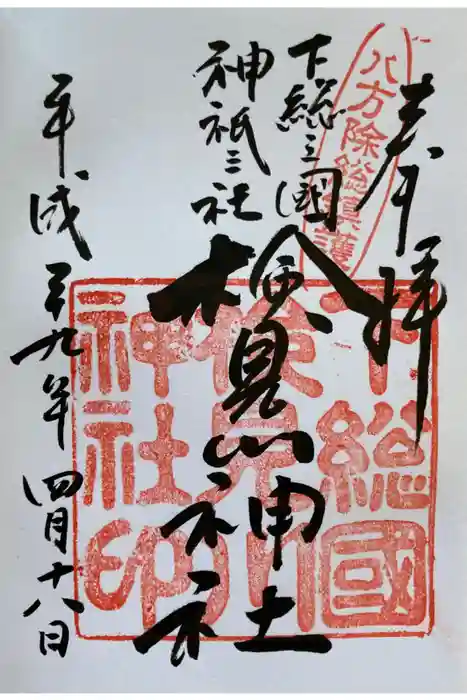 奉拝
八方除総鎮護
下総三国
神祇三社
検見川神社
下総國
検見川
神社印
平成二十九年四月十八日